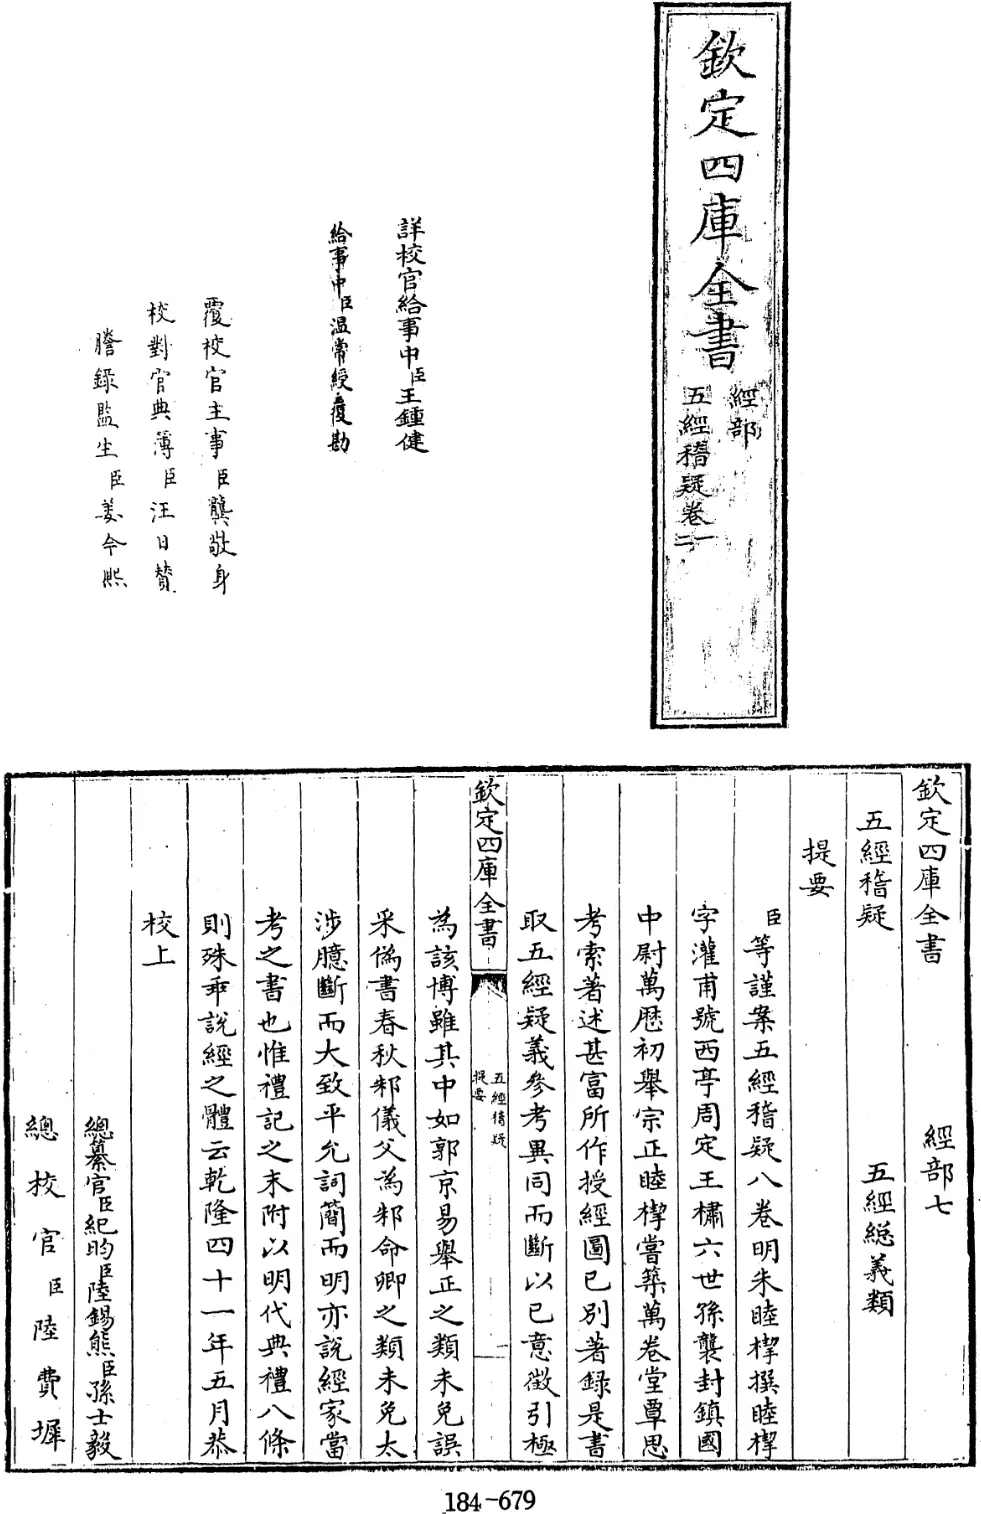 欽定四庫全書
經部
五經稽疑卷一
二
詳校官給事中臣王鍾健
給事中臣温常綬覆勘
覆校官主事臣龔敬身
校對官典簿臣汪日贊
謄錄監生臣姜今熙
欽定四庫全書 經部七
五經稽疑 五經總義類
提要
臣等謹案五經稽疑八卷明朱睦㮮撰睦㮮
字灌甫號西亭周定王橚六世孫襲封鎮國
中尉萬歴初舉宗正睦㮮嘗築萬卷堂覃思
考索著述甚富所作授經圖已别著錄是書
取五經疑義參考異同而斷以已意徵引極
欽定四庫全書
五經稽疑
提要
一
為該博雖其中如郭京易舉正之類未免誤
采偽書春秋邾儀父為邾命卿之類未免太
涉臆斷而大致平允詞簡而明亦說經家當
考之書也惟禮記之末附以明代典禮八條
則殊乖說經之體云乾隆四十一年五月恭
校上
總纂官臣紀昀臣陸錫熊臣孫士毅
總校官臣陸費墀
184-679